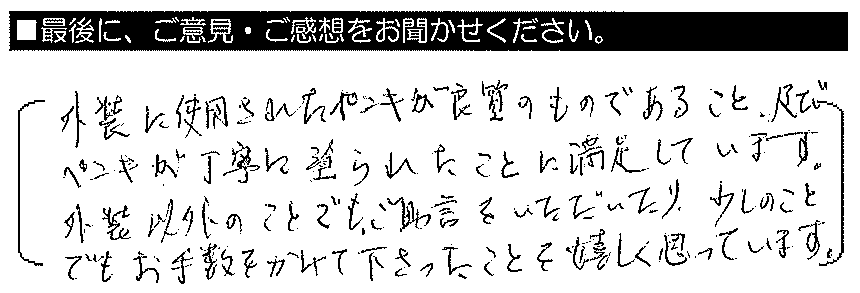 ■最後に、ご意見・ご感想をお聞かせください。
外装に使用されたペンキが良質のものであること、及び
ペンキが丁寧に塗られたことに満足しています。
外装以外のことでも、ご助言をいただいたり、少しのこと
でもお手数をかけて下さったことを嬉しく思っています。